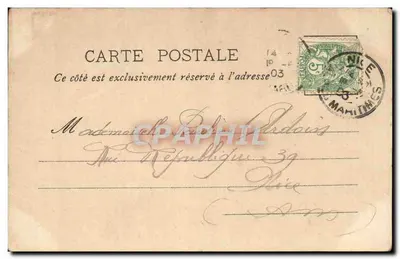 CARTE POSTALE
Ce côté est exclusivement réservé à l'adresse
14
03
NICE
03
MARITIMES
5
CPAPHIL
Mademoiselle
Rue République 39
Nice
(A.M.)